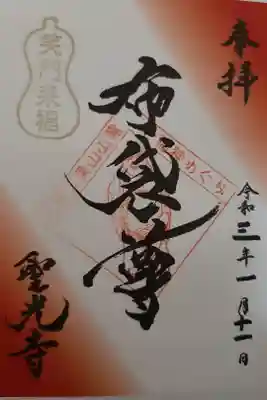 奉拝
令和三年一月十一日
布袋尊
笑門来福
聖光寺